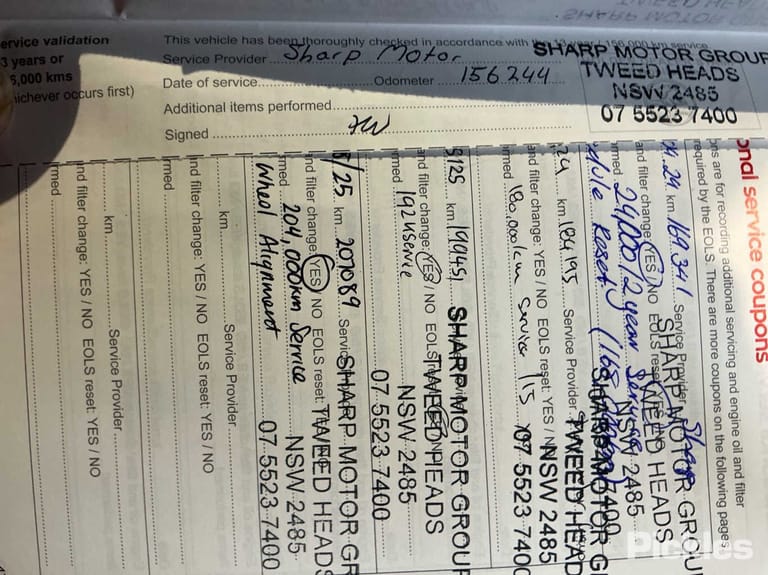 ervice validation
3 years or
6,000 kms
hichever occurs first)
This vehicle has been thoroughly checked in accordance with
Service Provider Sharp Motor
Date of service Odometer 156244
Additional items performed
Signed
SHARP MOTOR GROUP
TWEED HEADS
NSW 2485
07 5523 7400
onal service coupons
ons are for recording additional servicing and engine oil and filter
required by the EOLS. There are more coupons on the following pages
km 169341 Service Provider Sharp
nd filter change: YES / NO EOLS reset
rmed 24,000/2 year Service
SHARP MOTOR GROU
TWEED HEADS
NSW 2485
24 km Service Provider
nd filter change: YES / NO EOLS reset: YES / N
rmed 180,000km Service
SHARP MOTOR G
TWEED HEAD
NSW 2485
07 5523 7400
km
nd filter change: YES / NO EOLS
rmed 192K service
SHARP MOTOR GROUP
TWEED HEADS
NSW 2485
07 5523 7400
/25 km 207089
nd filter change: YES / NO EOLS reset:
rmed 204,000km Service
Wheel Alignment
SHARP MOTOR GR
TWEED HEADS
NSW 2485
07 5523 7400
km Service Provider
nd filter change: YES / NO EOLS reset: YES / NO
rmed
km Service Provider
nd filter change: YES / NO EOLS reset: YES / NO
rmed
Pickles